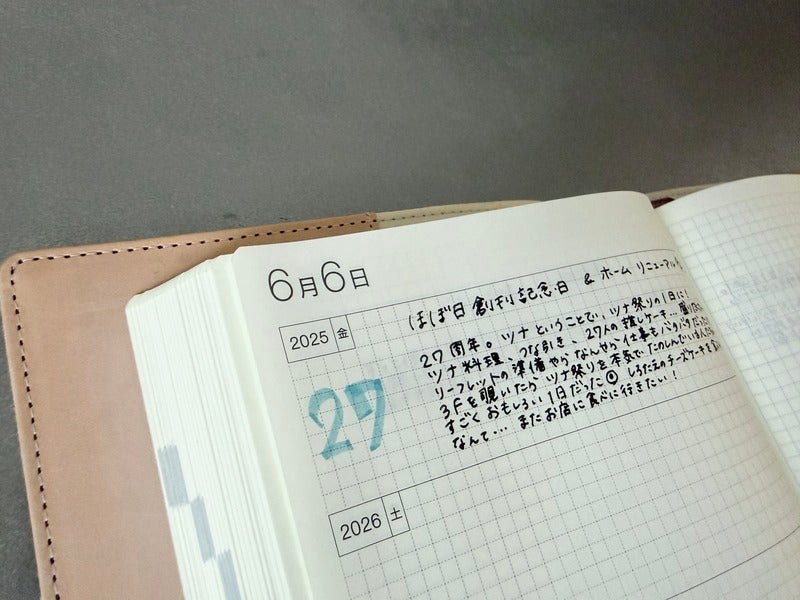 6月6日
ほぼ日創刊記念日 & ホームリニューアル
2025 金
27周年。ツナということで、ツナ祭りの1日に!
ツナ料理、つな引き、27人の推しケーキ…
リーフレットの準備やらなんやら仕事もバタバタだった
3Fを覗いたらツナ祭りを本気でたのしんでいる
すごくおもしろい1日だった しろたえのチーズケーキを
なんて… またお店に食べに行きたい!
27
2026 土